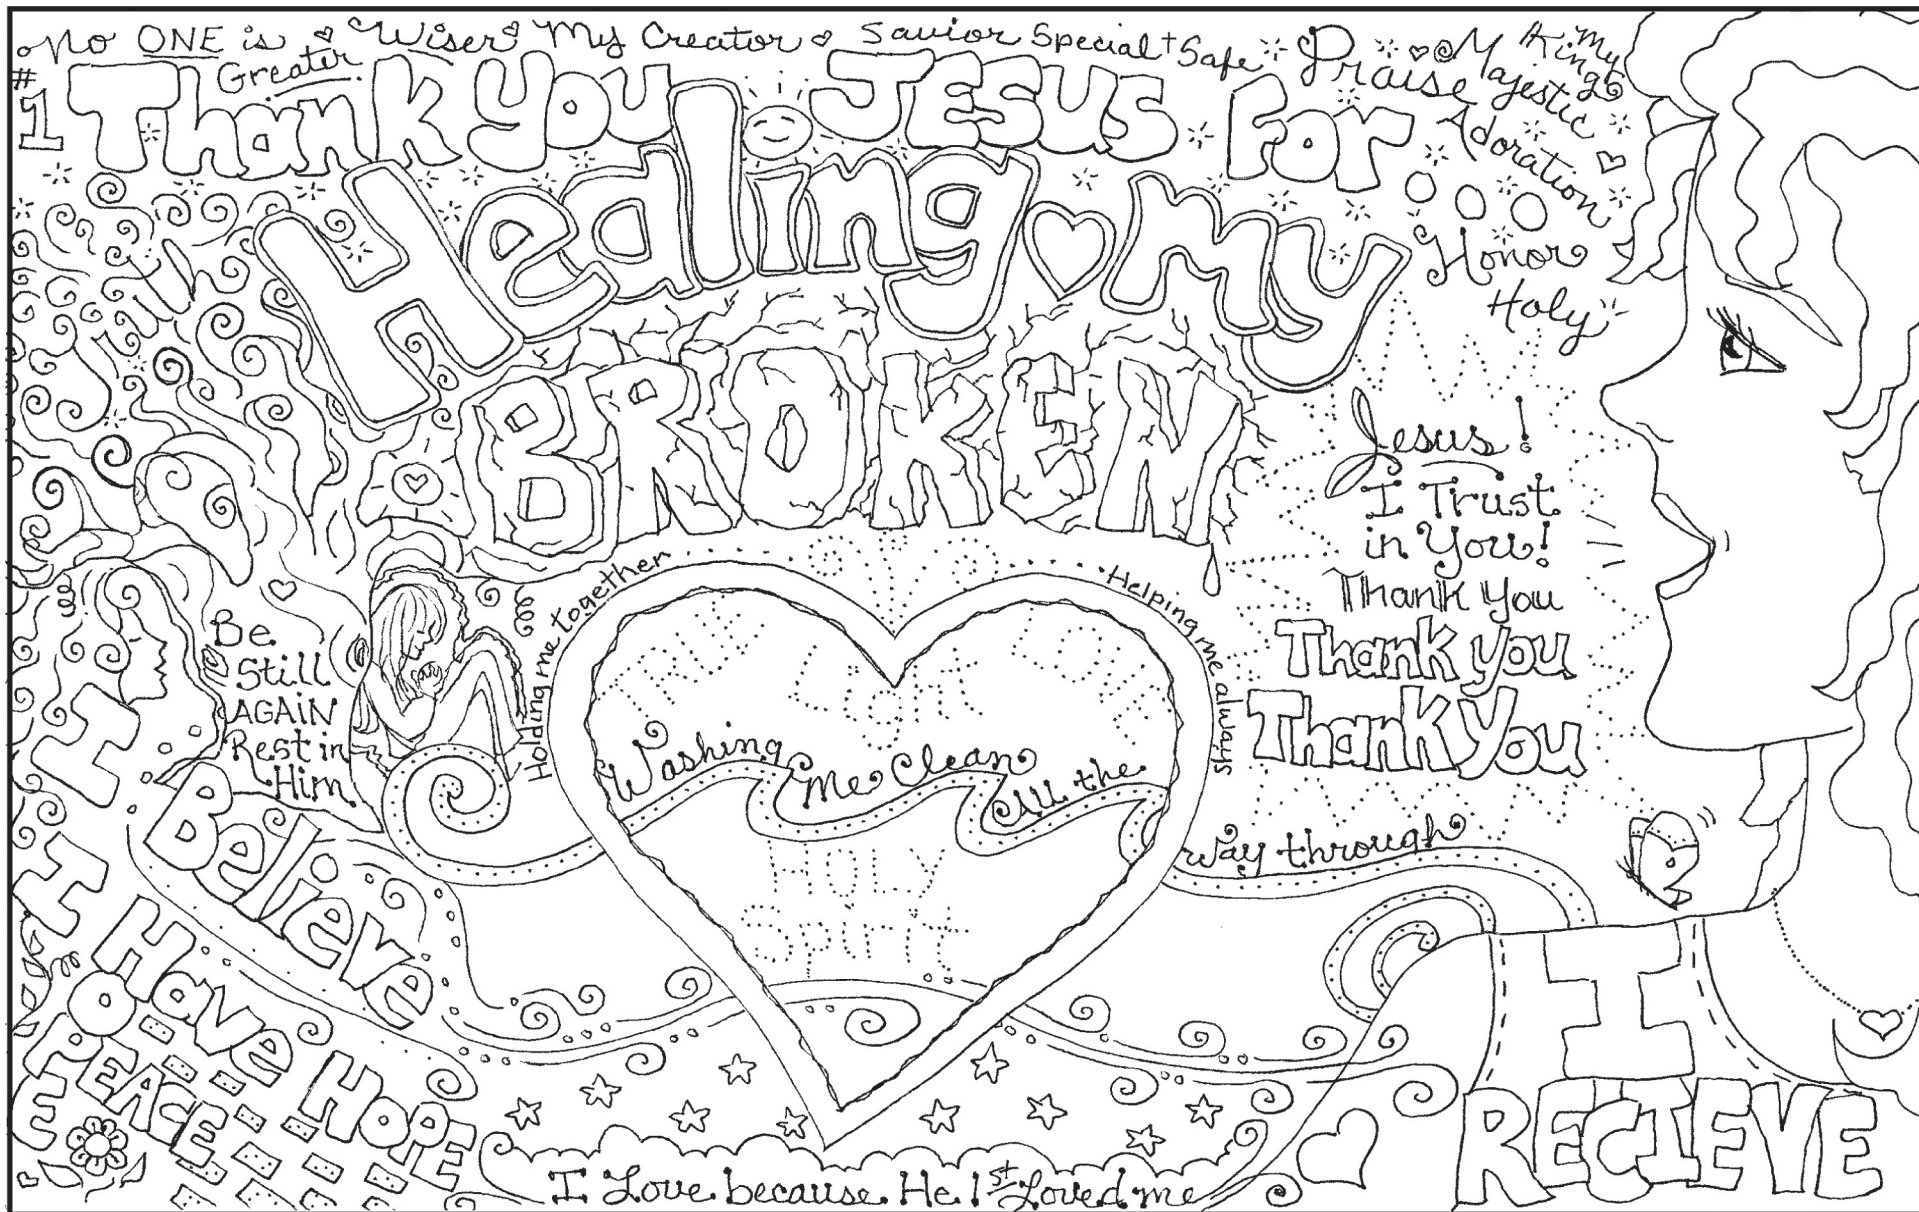 No ONE is Wiser My Creator Savior Special Safe
Greater
#1
Thank you JESUS For
Praise
My
King
Majestic
Adoration
Honor
Holy
Healing my
BROKEN
Jesus!
I Trust
in You!
Thank You
Thank you
Thank You
Be
Still
AGAIN
Rest in
Him
Holding me together
Helping me always
TRUE Light LOVE
Washing Me Clean All the way through
HOLY
Spirit
I Believe
I Have HOPE
PEACE
I
RECIEVE
I Love because He 1st Loved me